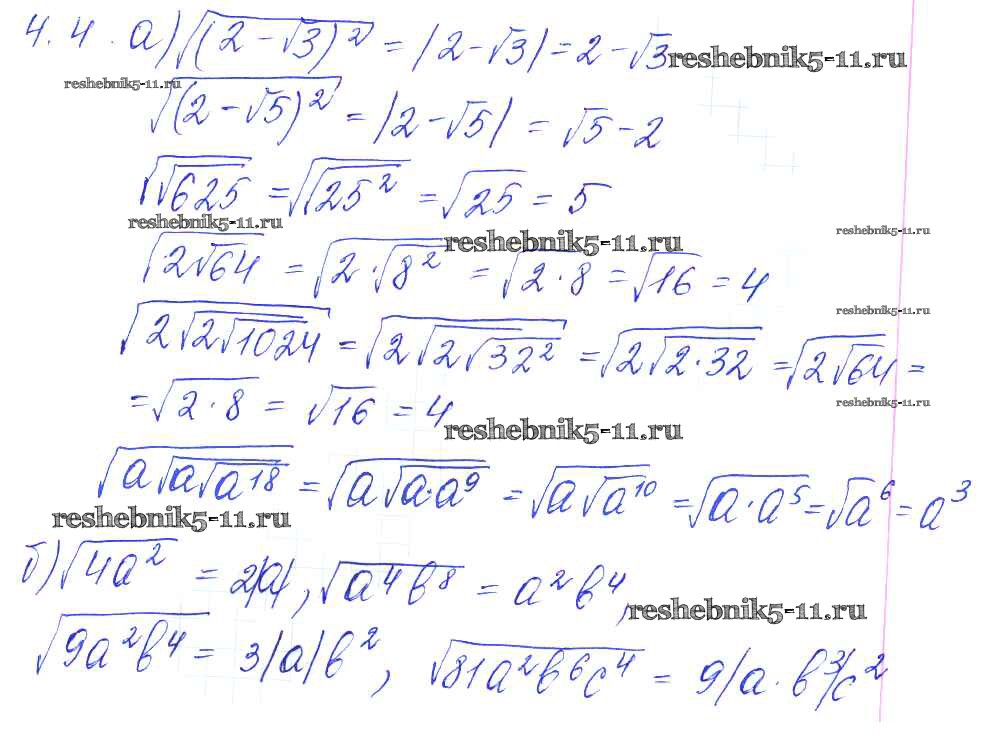 4.4. а) √((2-√3)²) = |2-√3| = 2-√3
reshebnik5-11.ru
reshebnik5-11.ru
√((2-√5)²) = |2-√5| = √5-2
√(√625) = √(√(25²)) = √25 = 5
reshebnik5-11.ru
reshebnik5-11.ru
reshebnik5-11.ru
√(2√64) = √(2·√(8²)) = √(2·8) = √16 = 4
reshebnik5-11.ru
√(2√(2√1024)) = √(2√(2√(32²))) = √(2√(2·32)) = √(2√64) =
= √(2·8) = √16 = 4
reshebnik5-11.ru
reshebnik5-11.ru
√(a√(a√(a¹⁸))) = √(a√(a·a⁹)) = √(a√(a¹⁰)) = √(a·a⁵) = √a⁶ = a³
reshebnik5-11.ru
б) √(4a²) = 2|a|, √(a⁴b⁸) = a²b⁴,
reshebnik5-11.ru
√(9a²b⁴) = 3|a|b², √(81a²b⁶c⁴) = 9|a·b³|c²